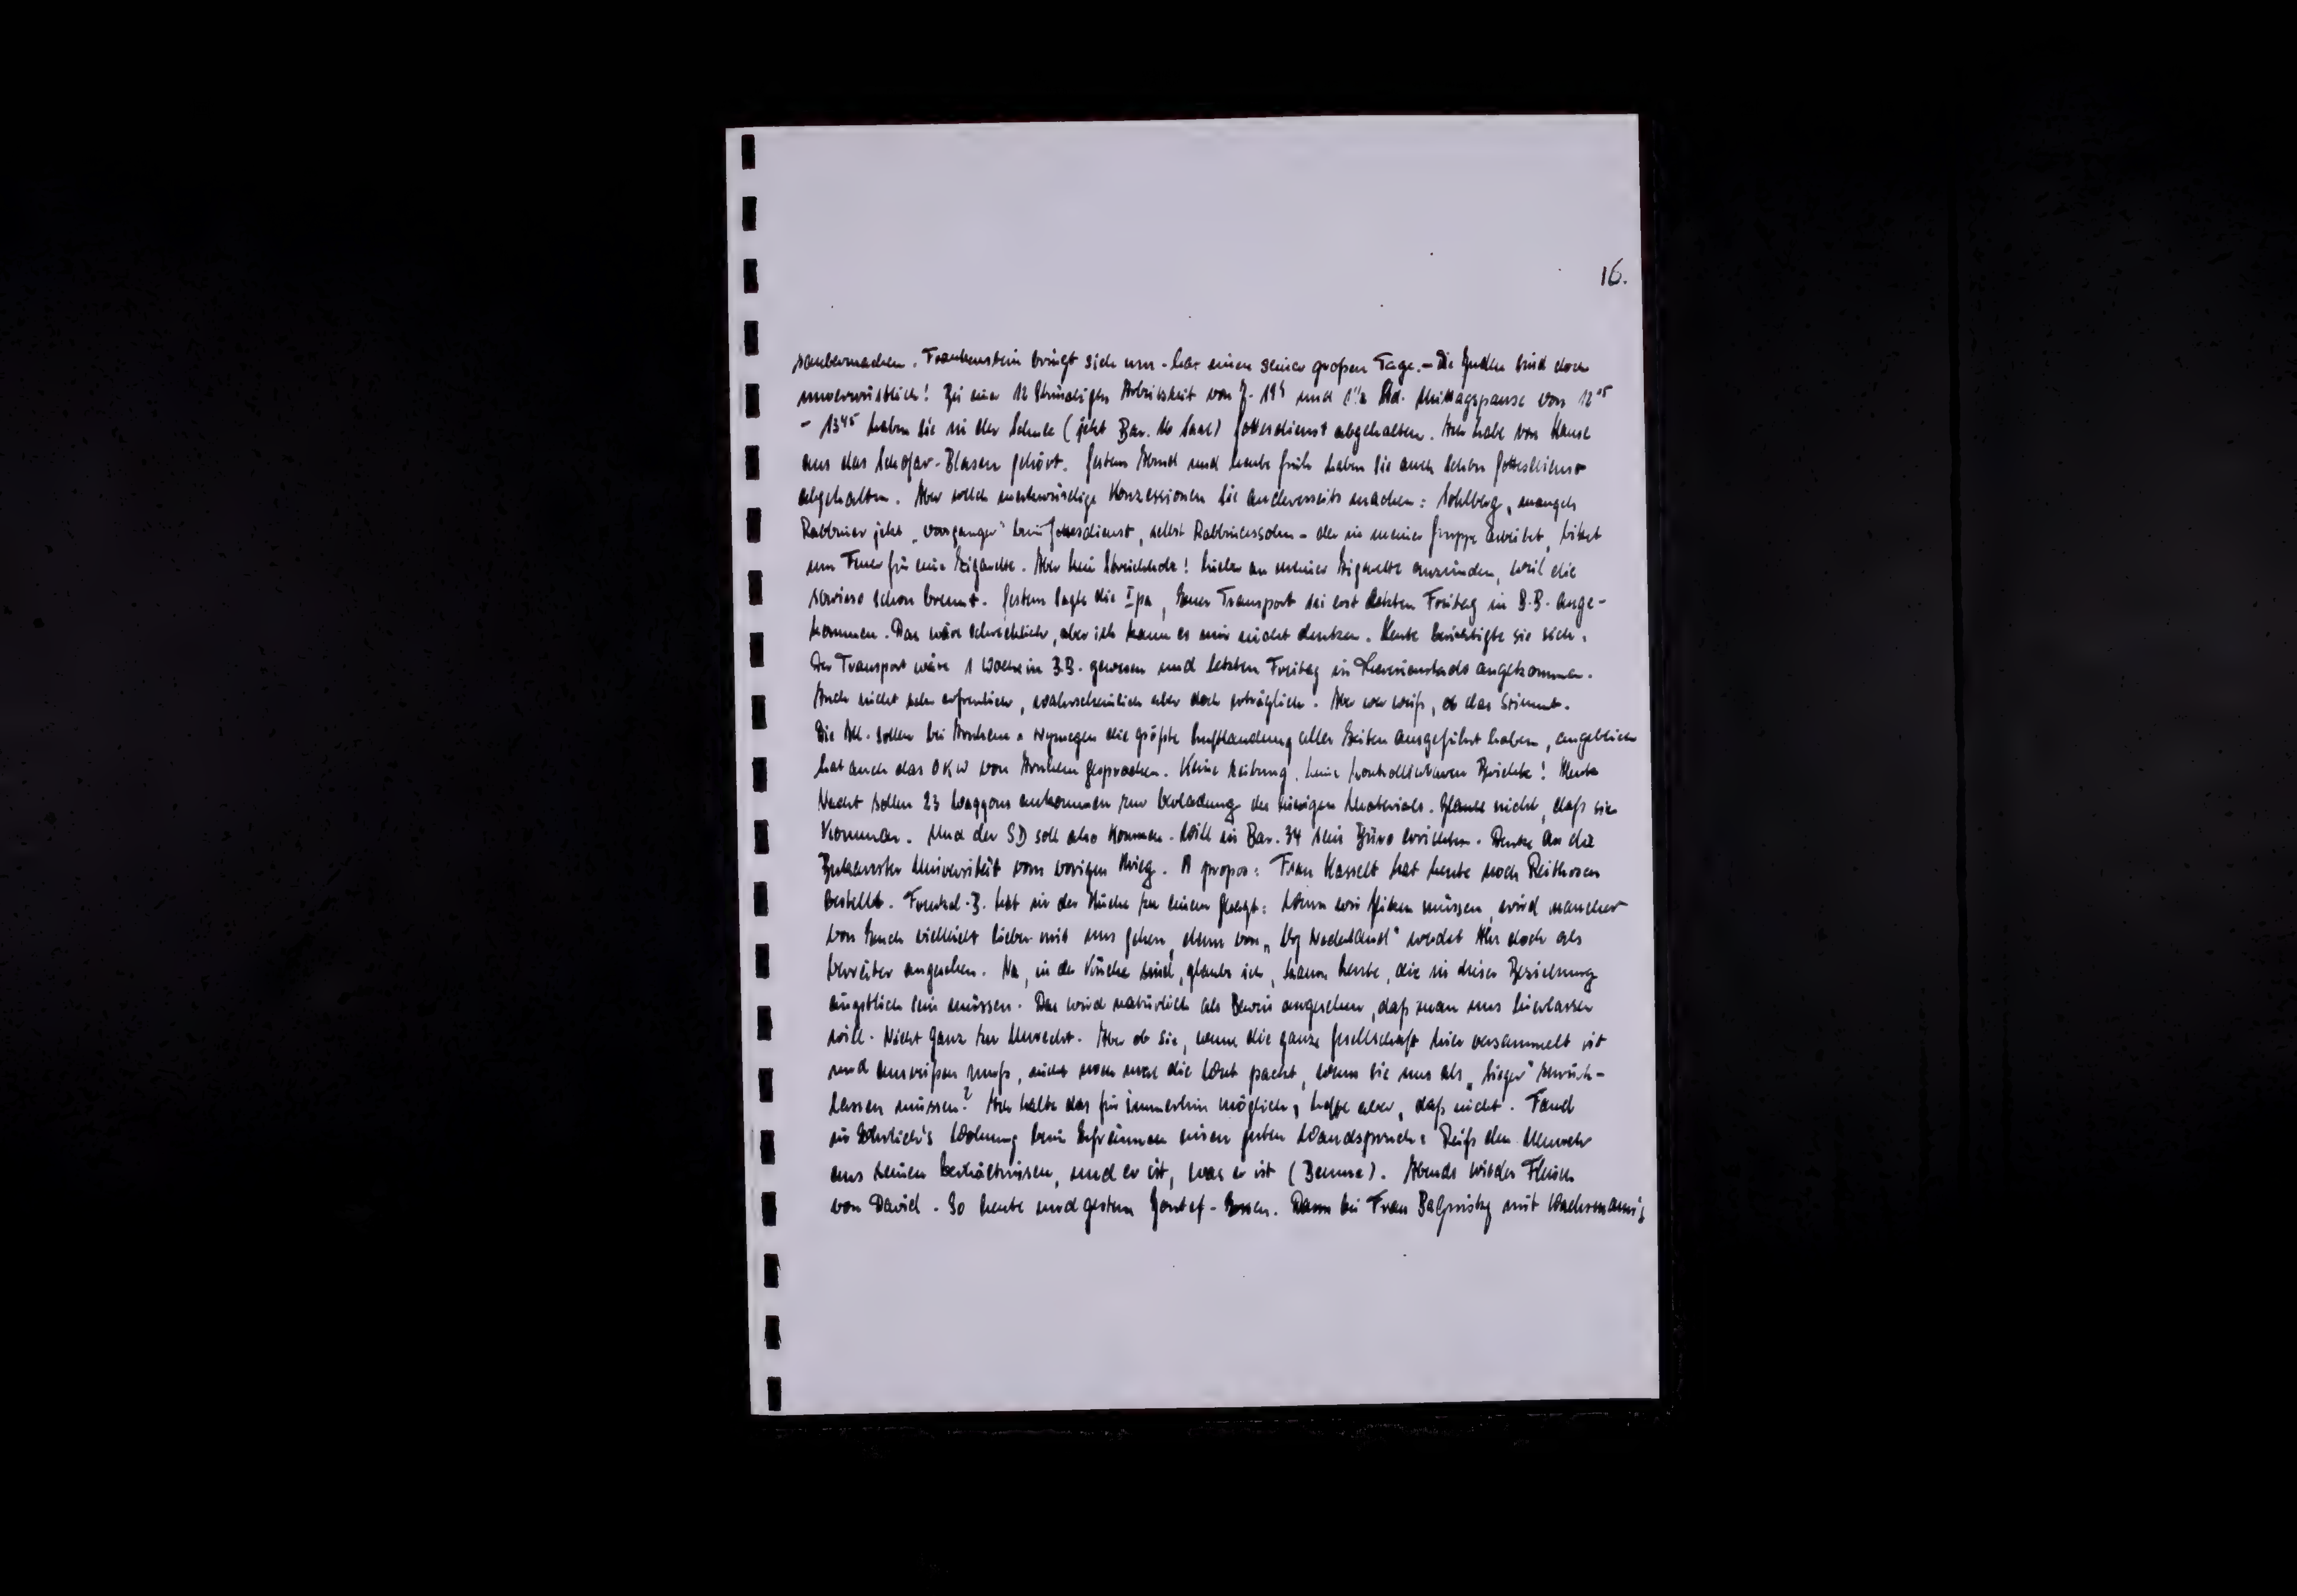 16.
saubermachen. Frankenstein bringt sich um - hat einen seiner großen Tage. - Die Juden sind doch
unverwüstlich! Bei einer 12 stündigen Arbeitszeit von 7-19 und 1½ Std. Mittagspause von 12¹⁵
- 13⁴⁵ haben sie in der Schule (jetzt Bar. Saal) Gottesdienst abgehalten. Ich habe von Hause
aus das Schofar-Blasen gehört. Gestern Abend und heute früh haben sie auch schon Gottesdienst
abgehalten. Aber welch merkwürdige Konzessionen sie andererseits machen: Sohlberg, mangels
Rabbiner jetzt "vorganger" beim Gottesdienst, selbst Rabbinerssohn - der in meiner Gruppe arbeitet, bittet
um Feuer für eine Zigarette. Aber kein Streichholz! Lieber an meiner Zigarette anzünden, weil die
sowieso schon brennt. Gestern sagte die Ipa, Euer Transport sei erst letzten Freitag in B.B. ange-
kommen. Das wäre schrecklich, aber ich kann es mir nicht denken. Heute berichtigte sie sich.
Der Transport wäre 1 Woche in B.B. gewesen und letzten Freitag in Theresienstadt angekommen.
Auch nicht sehr erfreulich, wahrscheinlich aber doch erträglich. Aber wer weiß, ob das stimmt.
Die All. sollen bei Arnhem u Nymegen die größte Luftlandung aller Zeiten ausgeführt haben, angeblich
hat auch das OKW von Arnhem gesprochen. Keine Zeitung, keine kontrollierbaren Berichte! Heute
Nacht sollen 23 Waggons ankommen zur Verladung des hiesigen Materials. Glaube nicht, daß sie
kommen. Und der SD soll also kommen. Will in Bar. 34 sein Büro errichten. Denke an die
Universität vom vorigen Krieg. A propos: Frau Hasselt hat heute noch Reithosen
bestellt. hat in der Küche zu einem gesagt: Wenn wir flitzen müssen, wird mancher
von Euch vielleicht lieber mit uns gehen, denn von "Vrij Nederland" werdet Ihr doch als
Verräter angesehen. Na, in der Küche sind, glaube ich, kaum Leute, die in dieser Beziehung
ängstlich sein müssen. Das wird natürlich als Beweis angesehen, daß man uns hierlassen
will. Nicht ganz zu Unrecht. Aber ob sie, wenn die ganze Gesellschaft hier versammelt ist
und ausreißen muß, nicht noch mal die Wut packt, wenn sie uns als "Sieger" zurück-
lassen müssen? Ich halte das für immerhin möglich, hoffe aber, daß nicht. Fand
in Ehrlich's Wohnung beim Aufräumen einen guten Wandspruch: Reiß den Mensch
aus seinen Verhältnissen, und er ist, was er ist (Seume). Abends wieder Fleisch
von David. So heute und gestern Jontef-Essen. Dann bei Frau mit